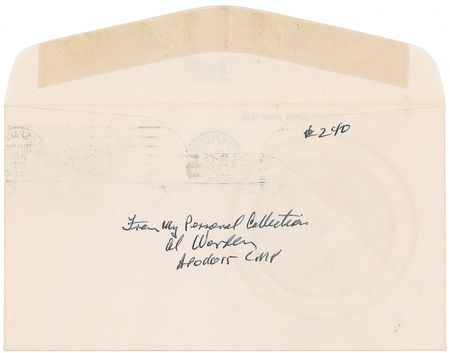 #240
From My Personal Collection
Al Worden
Apollo 15 CMP